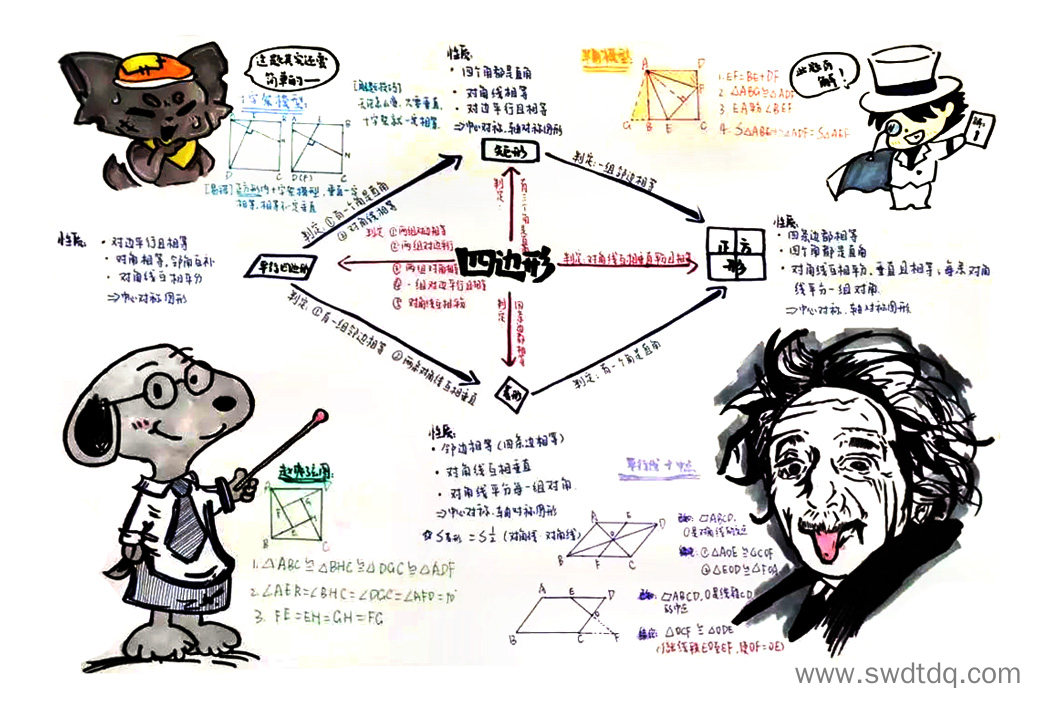 这题其实还蛮
简单的一
十字架模型:
[解题技巧]
无论怎么变,只要垂直,
十字架就一定相等.
A
D
D(F)
C
[总结]正方形内十字架模型,垂直一定
相等,相等不一定垂直
性质:
· 四个角都是直角
· 对角线相等
· 对边平行且相等
⇒中心对称.轴对称图形
矩形
半角模型:
A
D
G
B
E
C
1. EF=BE+DF
2. △ABG≌△ADF
3. EA平分∠BEF
4. S△ABE+S△ADF=S△AEF
此题有
解!
判定:①有一个角是直角
②对角线相等
判定:一组邻边相等
判定:
有三个角是直角
性质:
· 对边平行且相等
· 对角相等,邻角互补
· 对角线互相平分
⇒中心对称图形
平行四边形
判定 ①两组对边相等
②两组对边平行
③两组对角相等
④一组对边平行且相等
⑤对角线互相平分
四边形
判定:对角线互相垂直平分且相等
正方
形
性质:
· 四条边都相等
· 四个角都是直角
· 对角线互相平分,垂直且相等,每条对角
线平分一组对角.
⇒中心对称.轴对称图形
判定:①有一组邻边相等 ②两条对角线互相垂直
判定:
四条边都相等
菱形
判定:有一个角是直角
性质:
· 邻边相等(四条边相等)
· 对角线互相垂直
· 对角线平分每一组对角.
⇒中心对称.轴对称图形
☆S菱形=½(对角线·对角线)
赵爽弦图:
A
D
G
F
H
E
B
C
1. △ABC≌△BHC≌△DGC≌△ADF
2. ∠AEB=∠BHC=∠DGC=∠AFD=90°
3. FE=EH=GH=FG
平行线+中点
A
E
D
O
B
F
C
▱ABCD,
O是对角线的交点
结论:①△AOE≌△COF
②△EOD≌△FOA
A
E
D
O
B
C
F
▱ABCD,O是线段CD
的中点
结论:△OCF≌△ODE
(延长线段EO至EF,使OF=OE)
www.swdtdq.com